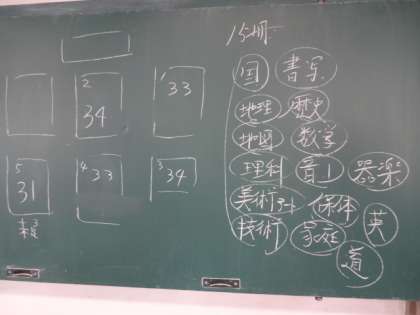 15冊
国 書写
地理 歴史
地図 数学
理科 音1 器楽
美術アート 保体 英
技術 家庭
道
2 34
1 33
5 31
4 33
3 34